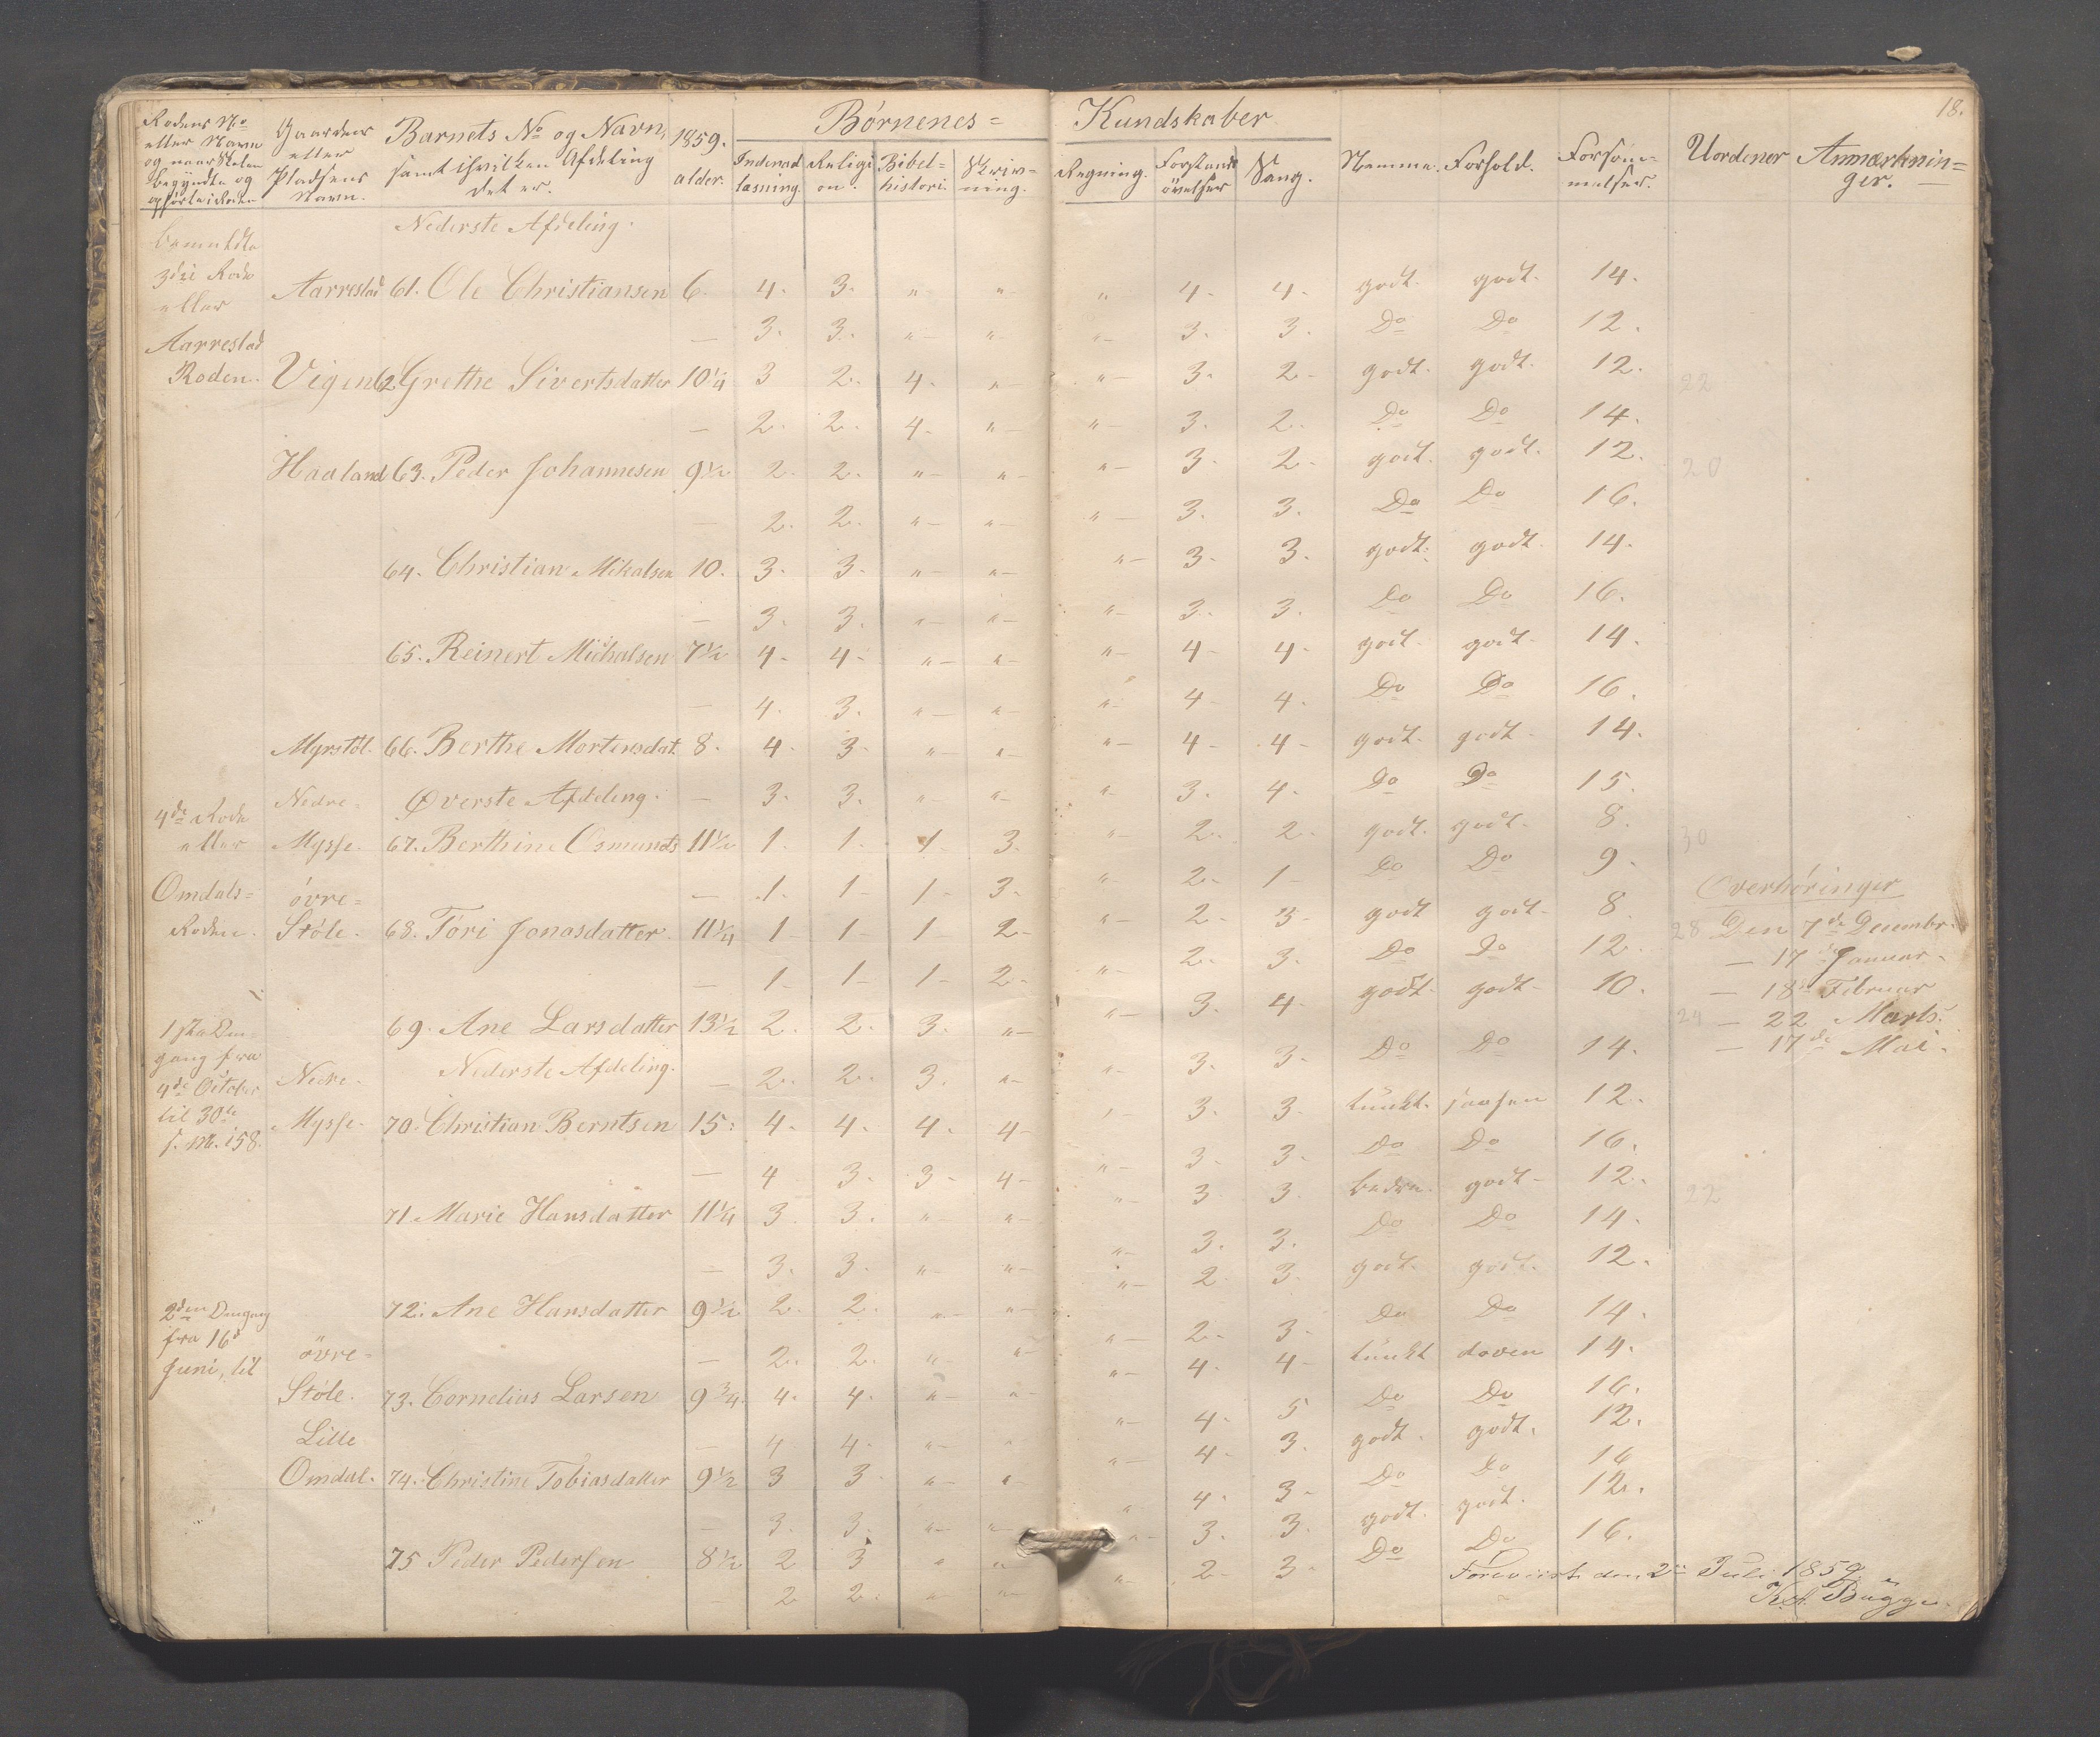 18.
Rodens No Gaardens Barnets No og Navn, 1859. Børnenes= Kundskaber
eller Navn eller samt ihvilken Afdeling alder. Indenad Religi Bibel= Skriv= Regning. Forstands Sang. Nemme. Forhold. Forsøm= Uordener Anmærknin=
og naar Skolen Pladsens det er. læsning. on. histori. ning. øvelser melser. ger.
begyndte og Navn.
Nederste Afdeling.
3die Rode
eller Aarrestad 61. Ole Christiansen 6. 4. 3. " " " 4. 4. godt. godt. 14.
Aarrestad — 3. 3. " " " 3. 3. Do Do 12.
Roden. Vigen 62. Grethe Sivertsdatter 10 1/4 3 2. 4. " " 3. 2. godt. godt. 12. 22
— 2. 2. 4. " " 3. 2. Do Do 14.
Haaland 63. Peder Johannesen 9 1/2 2. 2. " " " 3. 2. godt. godt. 12. 20
— 2. 2. " " " 3. 3. Do Do 16.
64. Christian Mikalsen 10. 3. 3. " " " 3. 3. godt. godt. 14.
— 3. 3. " " " 3. 3. Do Do 16.
65. Reinert Michalsen 7 1/2 4. 4. " " " 4. 4. godt. godt. 14.
— 4. 3. " " " 4. 4. Do Do 16.
Myrstøl. 66. Berthe Mortensdat. 8. 4. 3. " " " 4. 4. godt. godt. 14.
4de Rode Nedre= Øverste Afdeling. — 3. 3. " " " 3. 4. Do Do 15.
eller Mysse. 67. Berthine Osmunds 11 1/2 1. 1. 1. 3. " 2. 2. godt. godt. 8. 30
Omdals= øvre= — 1. 1. 1. 3. " 2. 1. Do Do 9.
Overhøringer
Roden. Støle. 68. Tøri Jonasdatter. 11 1/4 1 1 1 2. " 2. 3. godt godt. 8. 28 Den 7de Decembr.
— 1. 1. 1. 2. " 2. 3. Do Do 12. — 17de Januar.
— 18de Februar
1ste Om= 69. Ane Larsdatter 13 1/2 2. 2. 3. " " 3. 4. godt. godt. 10. 24 — 22 Marts.
gang fra Nederste Afdeling. — 17de Mai.
4de October Nedre. — 2. 2. 3. " " 3. 3. Do Do 14.
til 30te Mysse. 70. Christian Berntsen 15. 4. 4. 4. 4. " 3. 3. tunkt. 12.
158.
— 4 3. 3. 4. " 3. 3. Do Do 16.
71. Marie Hansdatter 11 1/4 3 3. " " " 3 3. bedre. godt. 12. 22
— 3. 3. " " " 3. 3. Do Do 14.
2den Omgang 72. Ane Hansdatter 9 1/2 2. 2. " " " 2. 3. godt. godt. 12.
fra 16de
Juni, til øvre= — 2. 2. " " " 2. 3. Do Do 14.
Støle. 73. Cornelius Larsen 9 3/4 4. 4. " " " 4. 4. tunkt doven 14.
Lille — 4 4. " " " 4. 5 Do Do 16.
Omdal. 74. Christine Tobiasdatter 9 1/2 3 3 " " " 4. 3. godt. godt. 12.
— 3. 3. " " " 4. 3. Do Do 16
75 Peder Pedersen 8 1/2 2 3 " " " 3. 3. godt. godt. 12.
— 2 2. " " " 2. 3. Do Do 16.
Foreviist den 2den Juli 1859
Bugge.